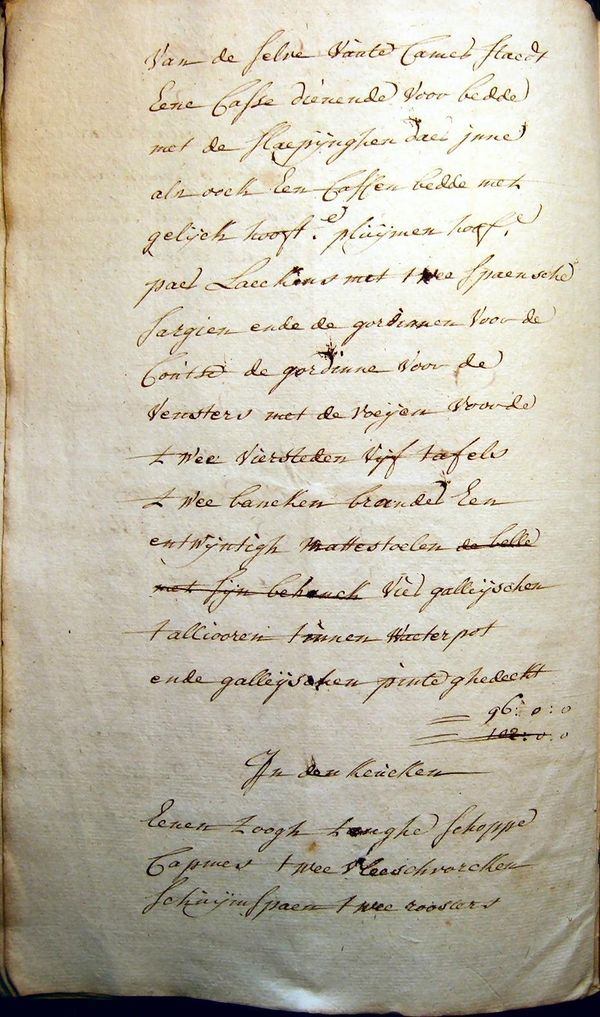 Van de selve Vaute Camer staedt
Eene Casse dienende Voor bedde
met de slaepijnghen daer inne
als oock Een Caffen bedde met
gelijck hooft. pluijmen hooft.
paer Laeckens met twee spaensche
sargien ende de gordinnen Voor de
de gordinne Voor de
Vensters met de roeijen Voor de
twee Viersteden Vijf tafels
twee bancken brander Een
entwijntigh mattestoelen de belle
met sijn behanck Vier galleijschen
talliooren tinnen Waeterpot
ende galleijschen pinte ghedeckt
96: 0: 0
102: 0: 0
In den keucken
Eenen Loogh tanghe schoppe
Capmes twee Vleeschvorcken
Schuijmspaen twee roosters